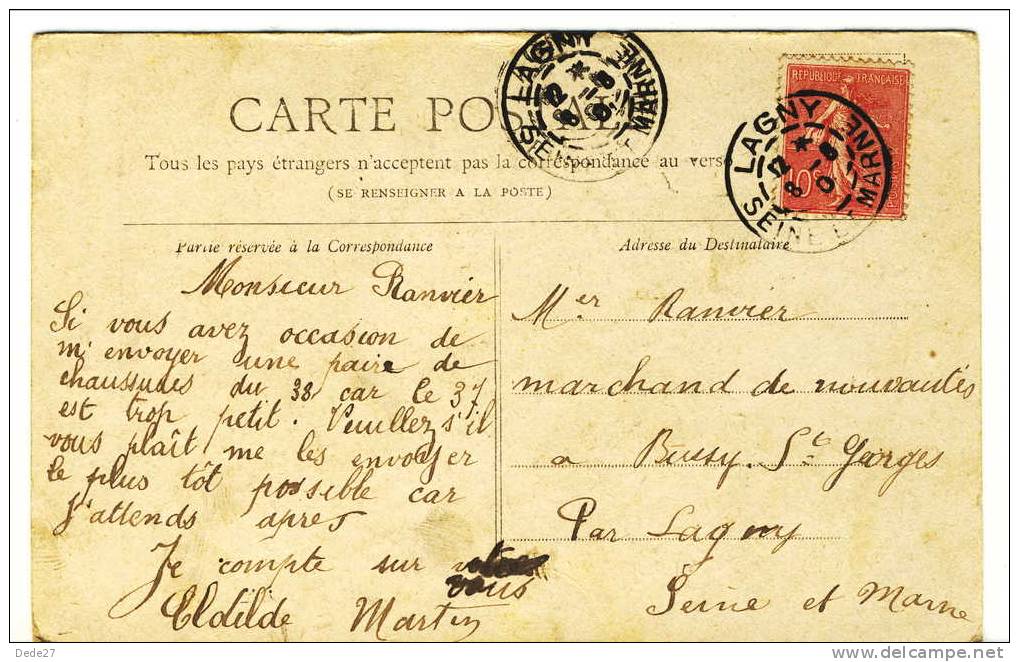 CARTE POSTALE
Tous les pays étrangers n'acceptent pas la correspondance au verso
(SE RENSEIGNER A LA POSTE)
LAGNY
SEINE ET MARNE
RÉPUBLIQUE FRANÇAISE
10c
LAGNY
SEINE ET MARNE
Partie réservée à la Correspondance
Monsieur Ranvier
Si vous avez occasion de
m'envoyer une paire de
chaussures du 38 car le 37
est trop petit. Veuillez s'il
vous plaît me les envoyer
le plus tôt possible car
j'attends apres
Je compte sur
vous
Clotilde Martin
Adresse du Destinataire
Mer Ranvier
marchand de nouvautés
a Bussy. St Gorges
Par Lagny
Seine et Marne
Dede27
www.delcampe.net